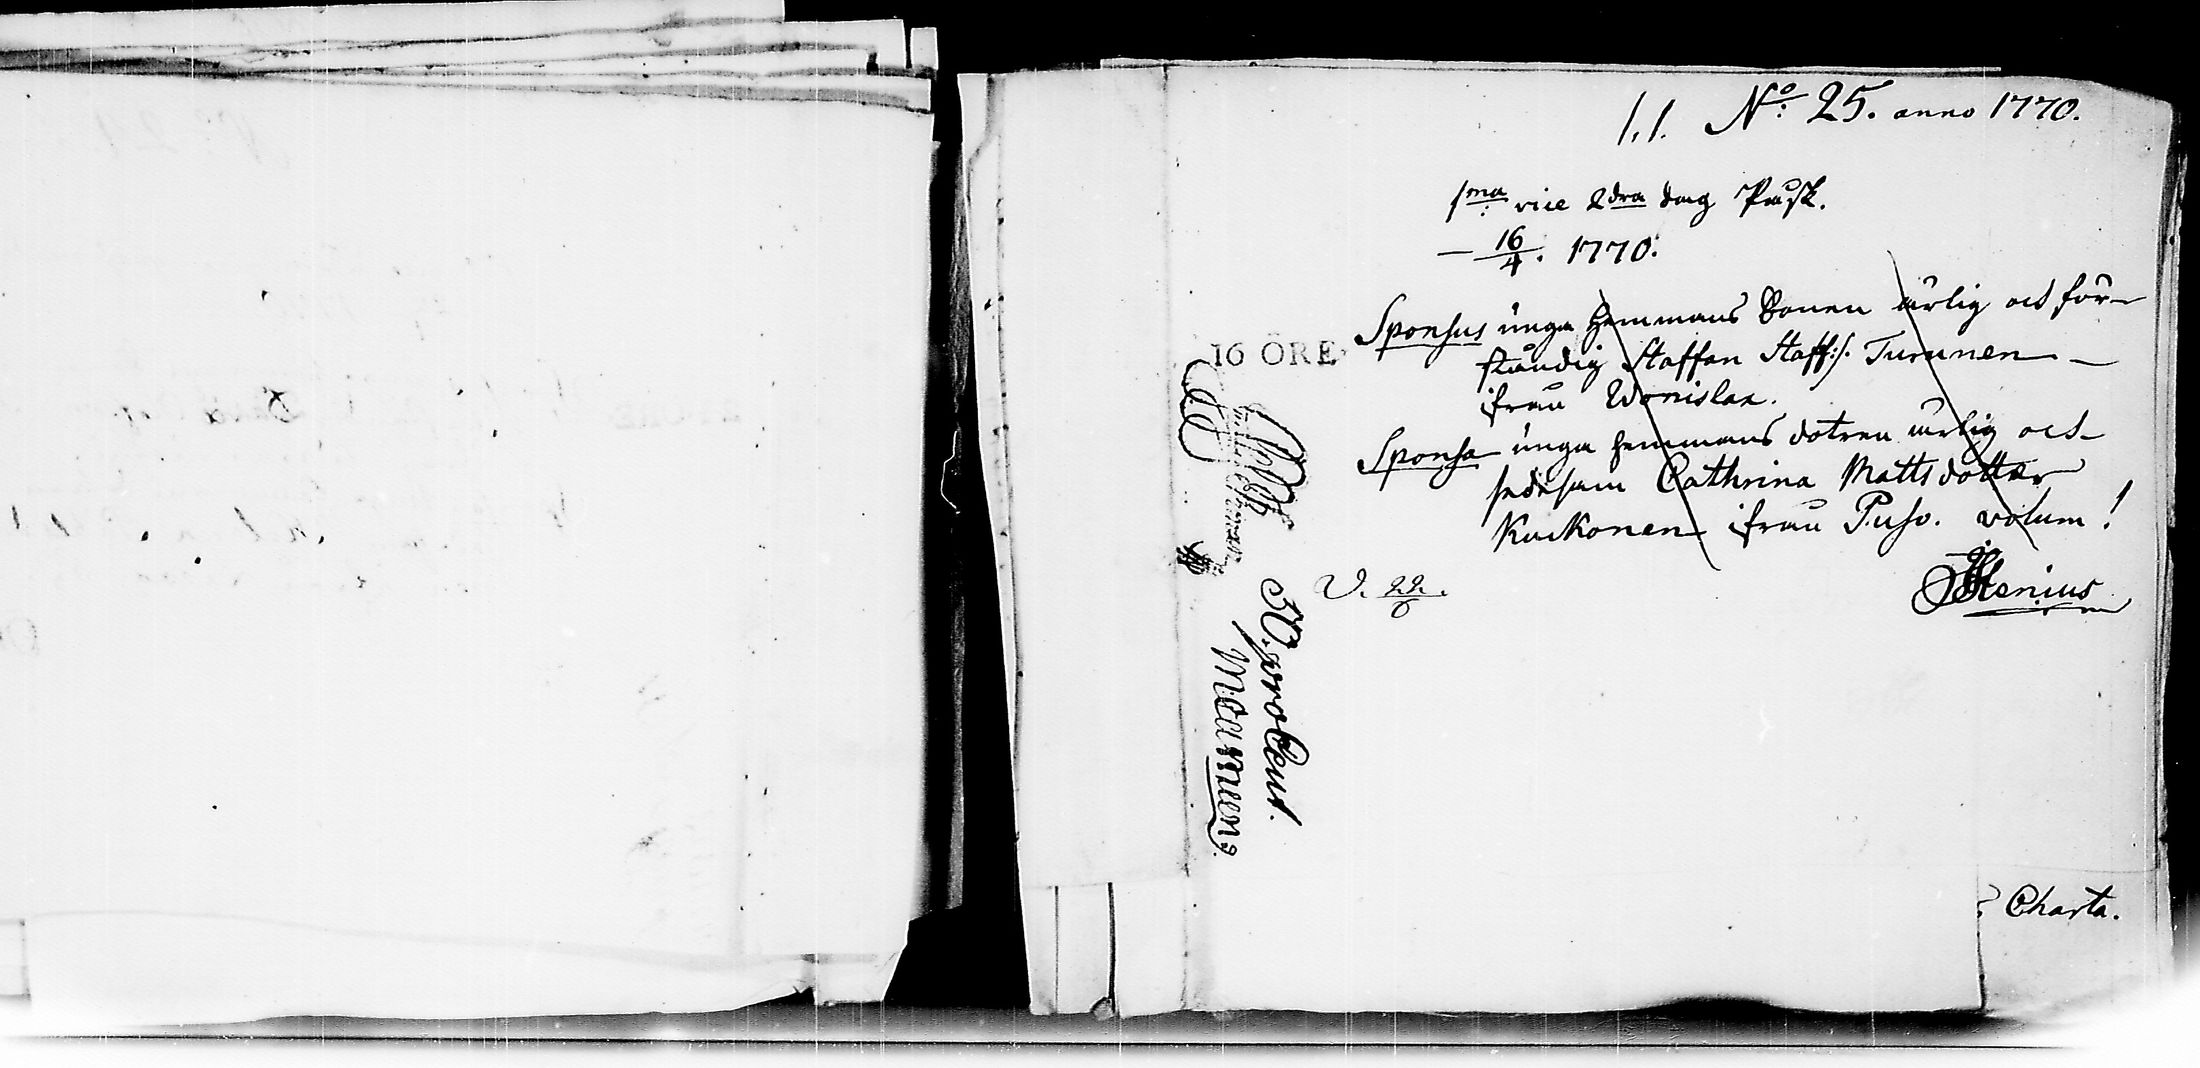 1.1. No: 25. anno 1770.
1ma: vice 2dra dag Påsk.
— 16/4. 1770.
Sponsus unga hemmans Sonen ärlig och för-
ståndig Staffan Staff:s. Turunen —
ifrån Wonislax.
Sponsa unga hemmans dotren ärlig och
sedesam Cathrina Mattsdotter
Kuckonen ifrån Puso. votum!
Stenius
V. 22/6.
16 ÖRE
pro Cent.
Charta.